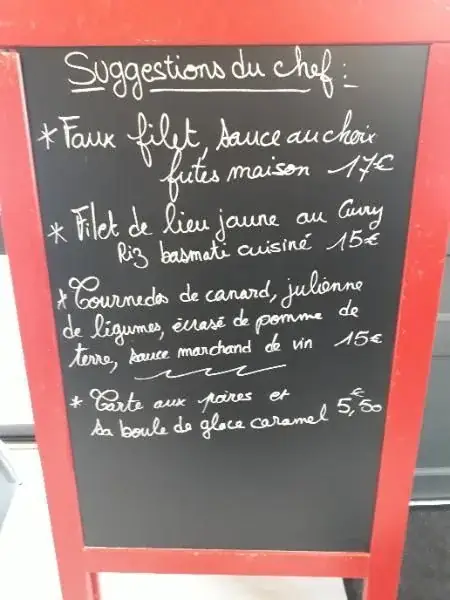 Suggestions du chef :
* Faux filet, sauce au choix
frites maison 17€
* Filet de lieu jaune au Curry
Riz basmati cuisiné 15€
* Tournedos de canard, julienne
de légumes, écrasé de pomme de
terre, sauce marchand de vin 15€
* Tarte aux poires et
sa boule de glace caramel 5,€50